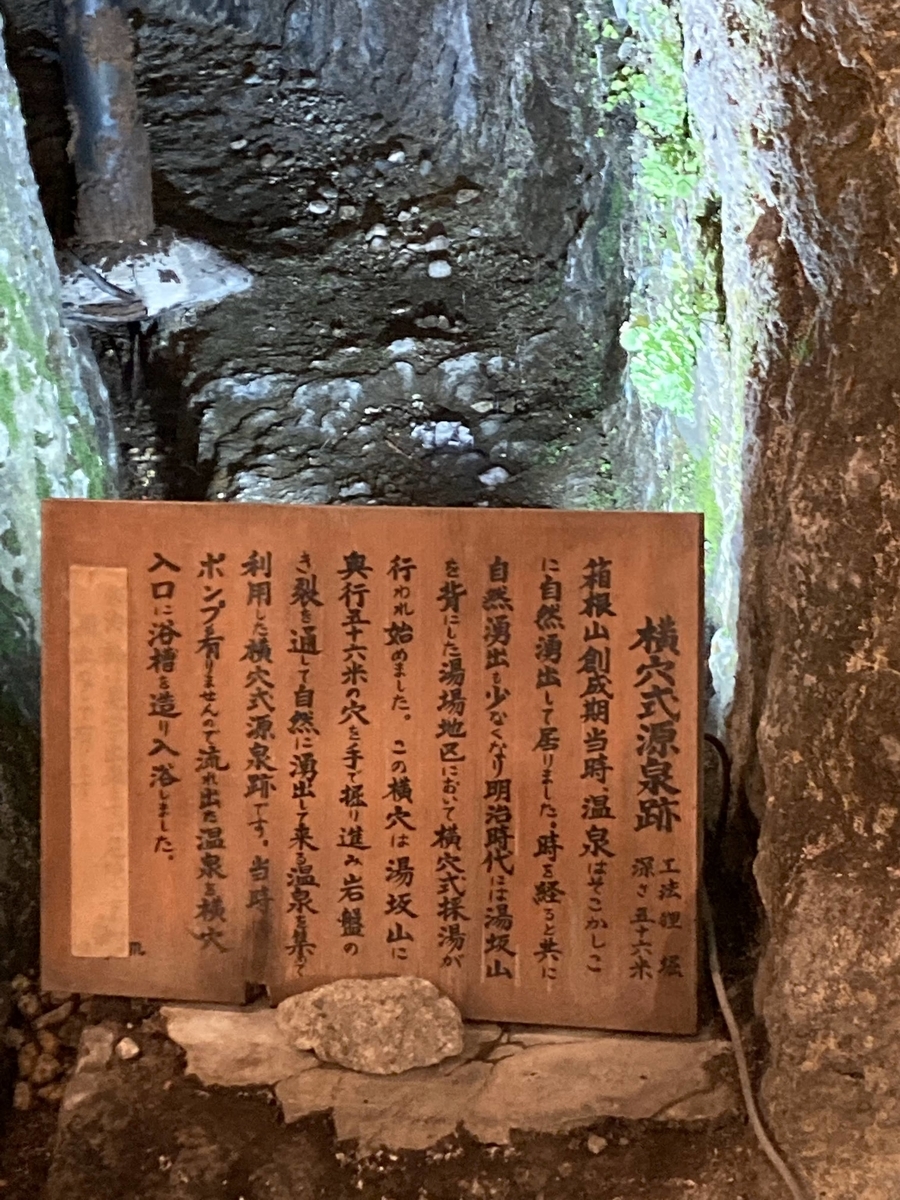 横穴式源泉跡
工法 狸 堀
深さ 五十六米
箱根山創成期当時、温泉はそこかしこ
に自然湧出して居りました。時を経ると共に
自然湧出も少なくなり明治時代には湯坂山
を背にした湯場地区において横穴式採湯が
行われ始めました。この横穴は湯坂山に
奥行五十六米の穴を手で掘り進み岩盤の
き裂を通して自然に湧出して来る温泉を集めて
利用した横穴式源泉跡です。当時
ポンプ有りませんので流れ出た温泉を横穴
入口に浴槽を造り入浴しました。